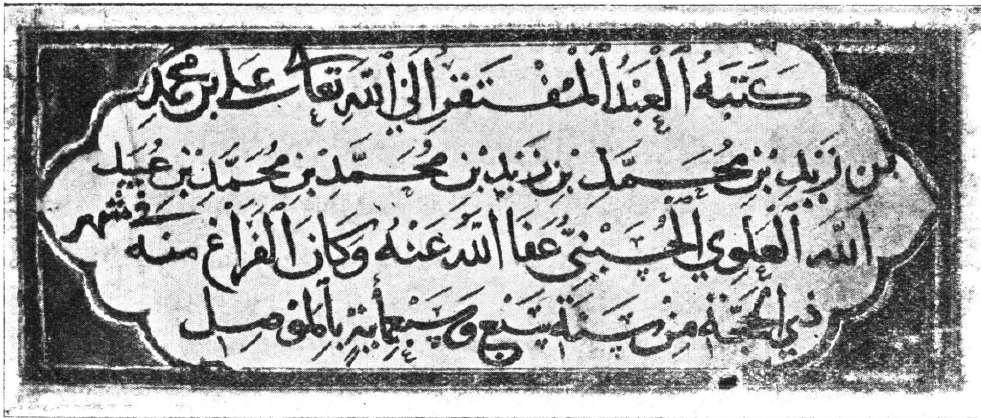 كَتَبَهُ ٱلْعَبْدُ ٱلْمُفْتَقِرُ إِلَىٰ ٱللَّهِ تَعَالَى علي بن محمد
بن زَيْدِ بْنِ مُحَمَّدِ بْنِ زَيْدِ بْنِ مُحَمَّدِ بْنِ مُحَمَّدِ بْنِ عُبَيْدِ
ٱللَّهِ ٱلْعَلَوِي ٱلْحُسَيْنِيّ عَفَا ٱللَّهُ عَنْهُ وَكَانَ ٱلْفَرَاغ منه في شهر
ذِي ٱلْحِجَّةِ مِنْ سَنَةِ سَبْعٍ وَسَبْعِمِائَةٍ بِٱلْمَوْصِلِ